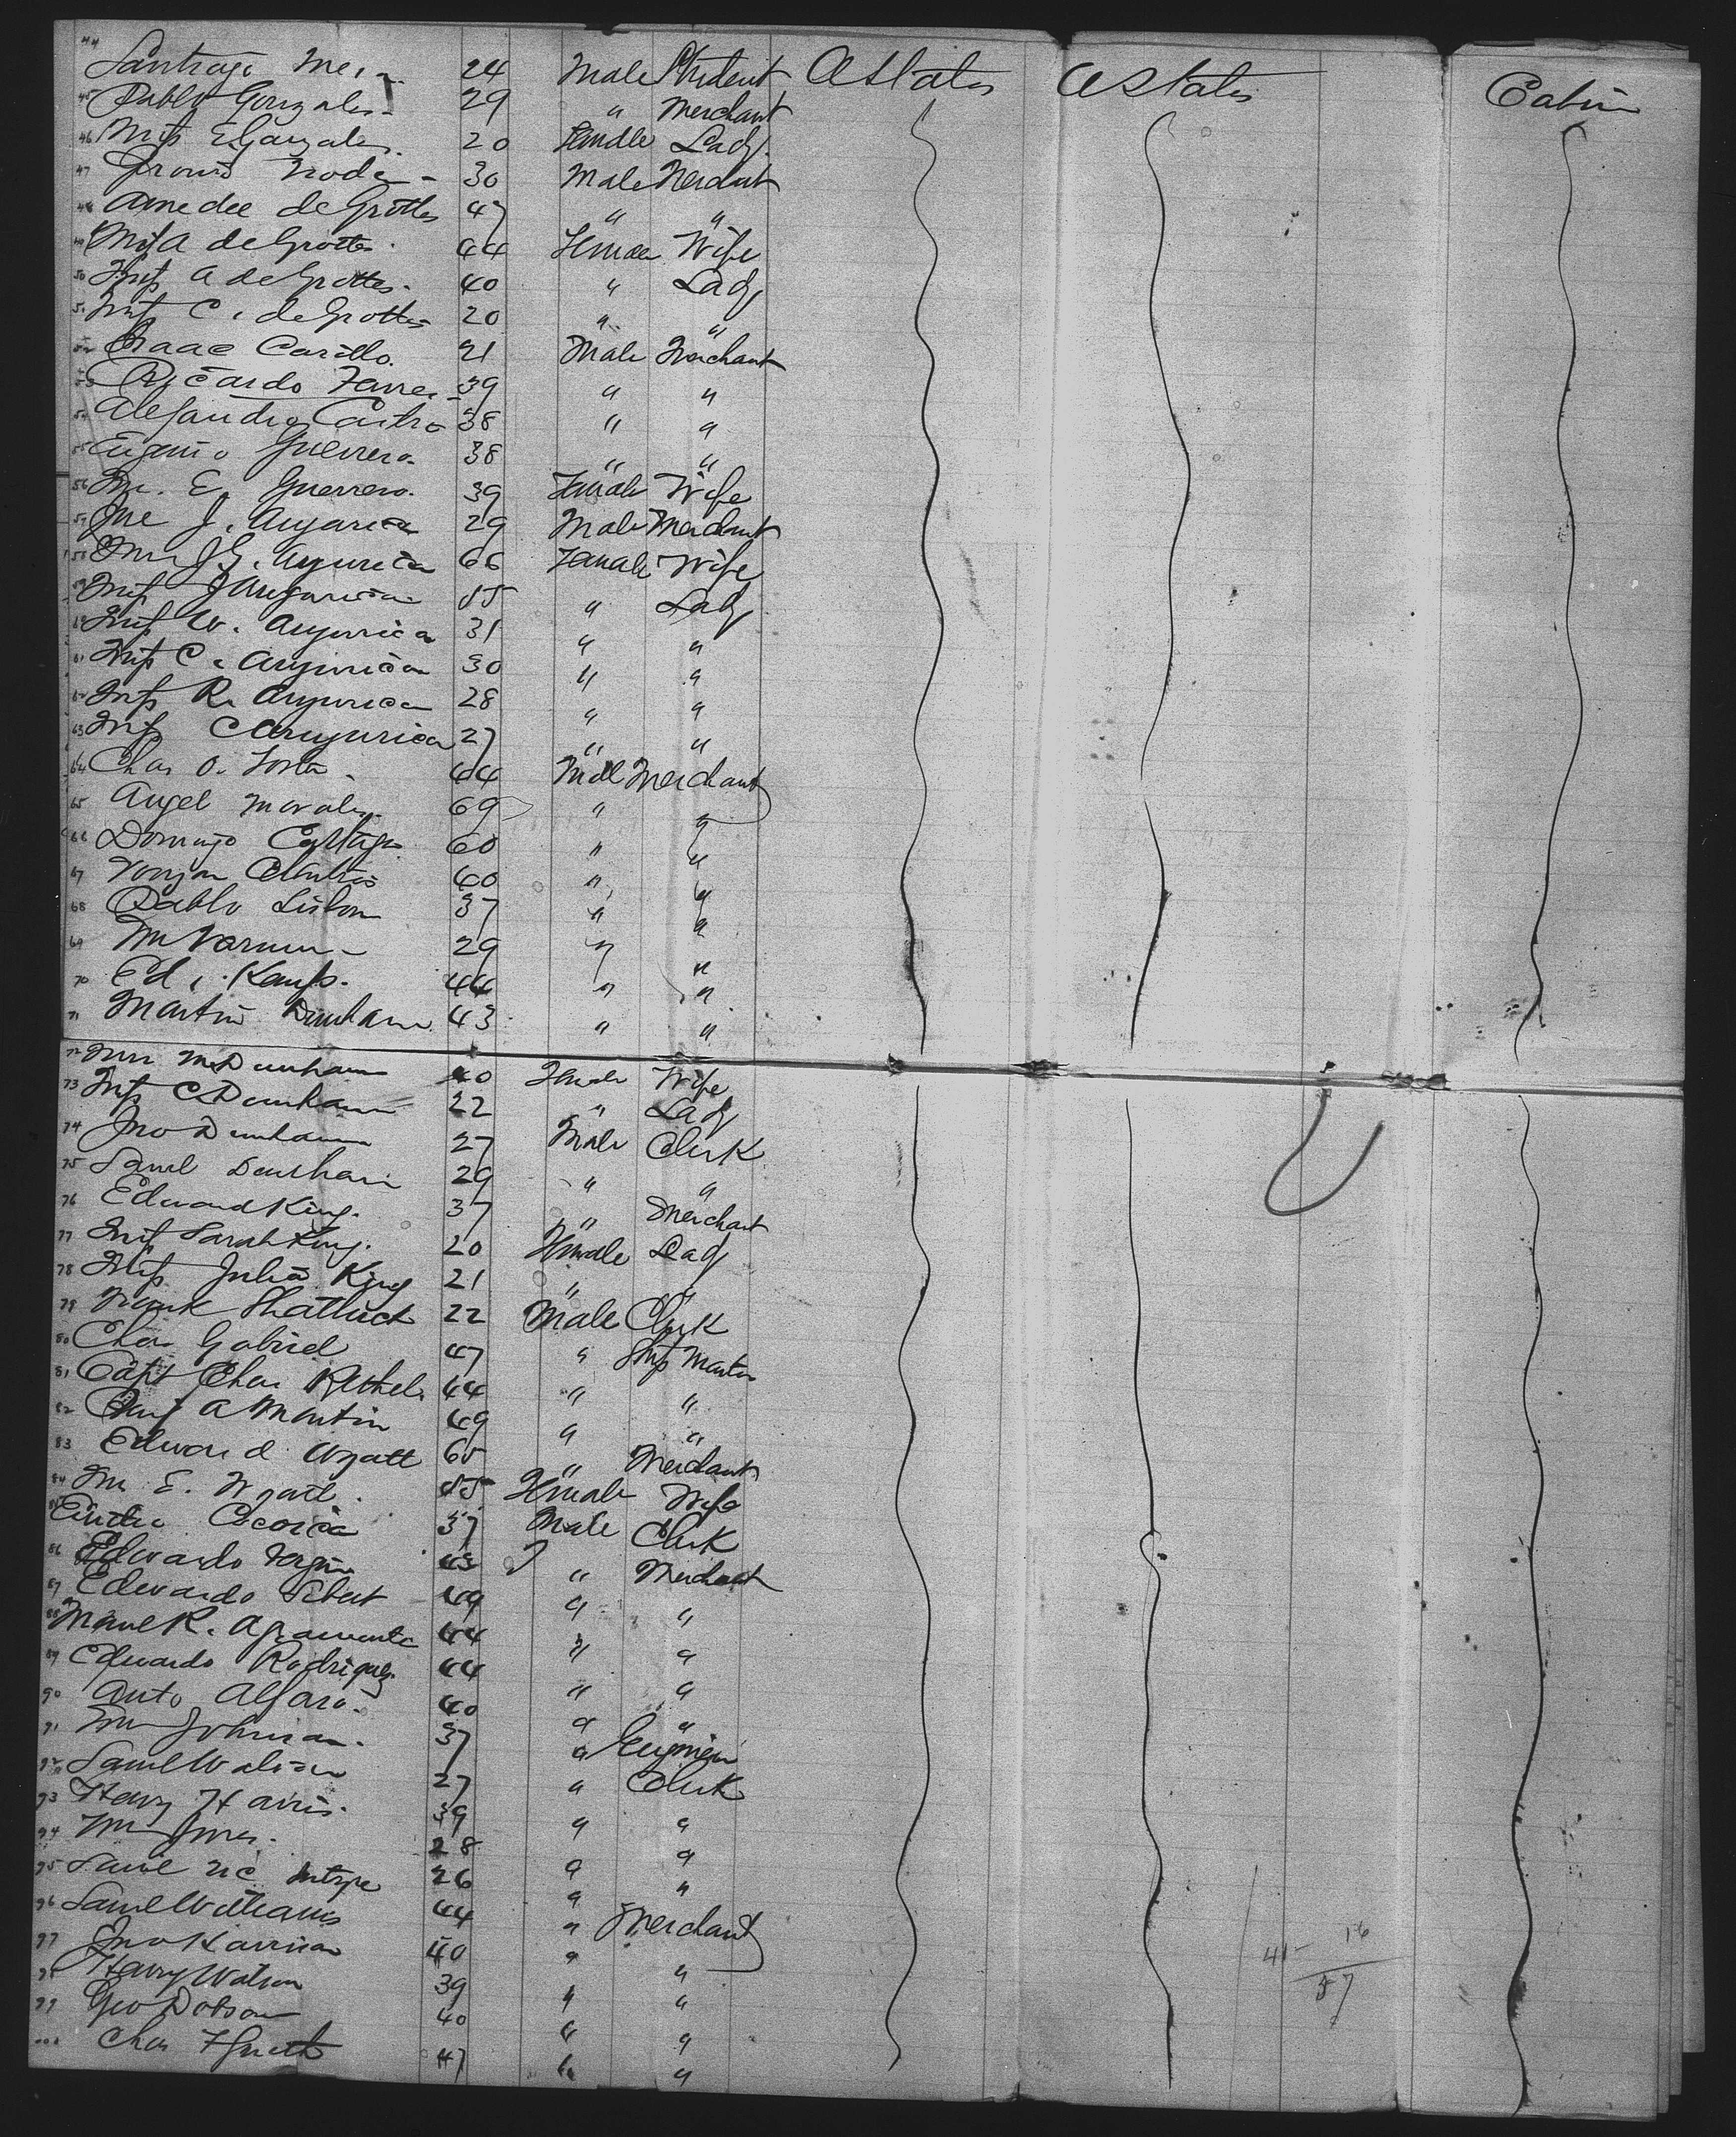 44 Santiago 24 Male Student U States U States Cabin
45 Pablo Gonzales 29 " Merchant
46 Miss E Gonzales 20 Female Lady
47 30 Male Merchant
48 Amedee de Grottes 47 " "
49 Mrs A de Grottes 44 Female Wife
50 Miss A de Grottes 40 " Lady
51 Miss C. de Grottes 20 " "
52 Isaac Carillo 21 Male Merchant
53 Ricardo 39 " "
54 Alejandro Castro 38 " "
55 Eugenio Guerrero 38 " "
56 Mrs. E. Guerrero 39 Female Wife
57 J. 29 Male Merchant
58 Mrs J. G. 66 Female Wife
59 Miss J 15 " Lady
60 Miss W. 31 " "
61 Miss C. 30 " "
62 Miss R. 28 " "
63 Miss C 27 " "
64 Chas O. 44 Male Merchant
65 Angel Morales 69 " "
66 Domingo 60 " "
67 40 " "
68 Pablo 37 " "
69 29 " "
70 Ed. 44 " "
71 Martin Dunham 43 " "
72 Mrs M Dunham 40 Female Wife
73 Miss C Dunham 22 " Lady
74 Jno Dunham 27 Male Clerk
75 Saml Dunham 29 " "
76 Edward King 37 " Merchant
77 Miss Sarah King 20 Female Lady
78 Miss Julia King 21 " "
79 Frank Shattuck 22 Male Clerk
80 Chas Gabriel 47 " Ship Master
81 Capt Chas Bethel 44 " "
82 A Martin 49 " "
83 Edward Wyatt 65 " Merchant
84 Mrs E. Wyatt 55 Female Wife
85 37 Male Clerk
86 Edwardo 43 " Merchant
87 Edwardo 49 " "
88 Manl R. Agramonte 44 " "
89 Edwardo Rodriguez 44 " "
90 Anto Alfaro 40 " "
91 Wm Johnson 37 " Engineer
92 Saml Watson 27 " Clerk
93 Harry Harris 39 " "
94 Wm Jones 28 " "
95 Saml Mc 26 " "
96 Saml Williams 44 " Merchant
97 Jno Harrison 40 " "
98 Harry Watson 39 " "
99 Geo Dobson 40 " "
100 Chas 47 " "
41 16
57